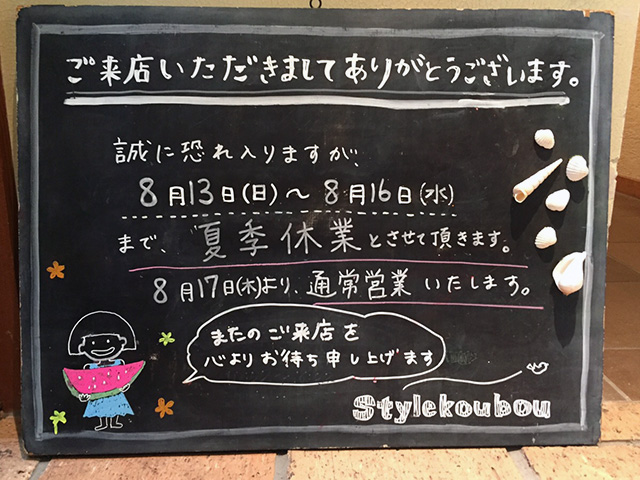 ご来店いただきましてありがとうございます。
誠に恐れ入りますが、
8月13日(日)～8月16日(水)
まで、夏季休業とさせて頂きます。
8月17日(木)より、通常営業いたします。
またのご来店を
心よりお待ち申し上げます
Stylekoubou